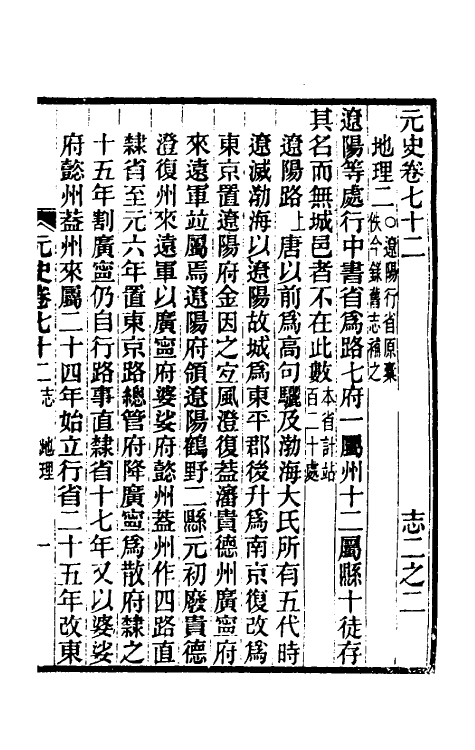 元史卷七十二 志二之二
地理二○遼陽行省原稾佚今錄舊志補之
遼陽等處行中書省爲路七府一屬州十二屬縣十徒存
其名而無城邑者不在此數本省計站百二十處
遼陽路上唐以前爲高句驪及渤海大氏所有五代時
遼滅渤海以遼陽故城爲東平郡後升爲南京復改爲
東京置遼陽府金因之宜風澄復葢瀋貴德州廣寧府
來遠軍竝屬焉遼陽府領遼陽鶴野二縣元初廢貴德
澄復州來遠軍以廣寧府婆娑府懿州葢州作四路直
隸省至元六年置東京路總管府降廣寧爲散府隸之
十五年割廣寧仍自行路事直隸省十七年又以婆娑
府懿州葢州來屬二十四年始立行省二十五年改東
元史卷七十二 志 地理 一